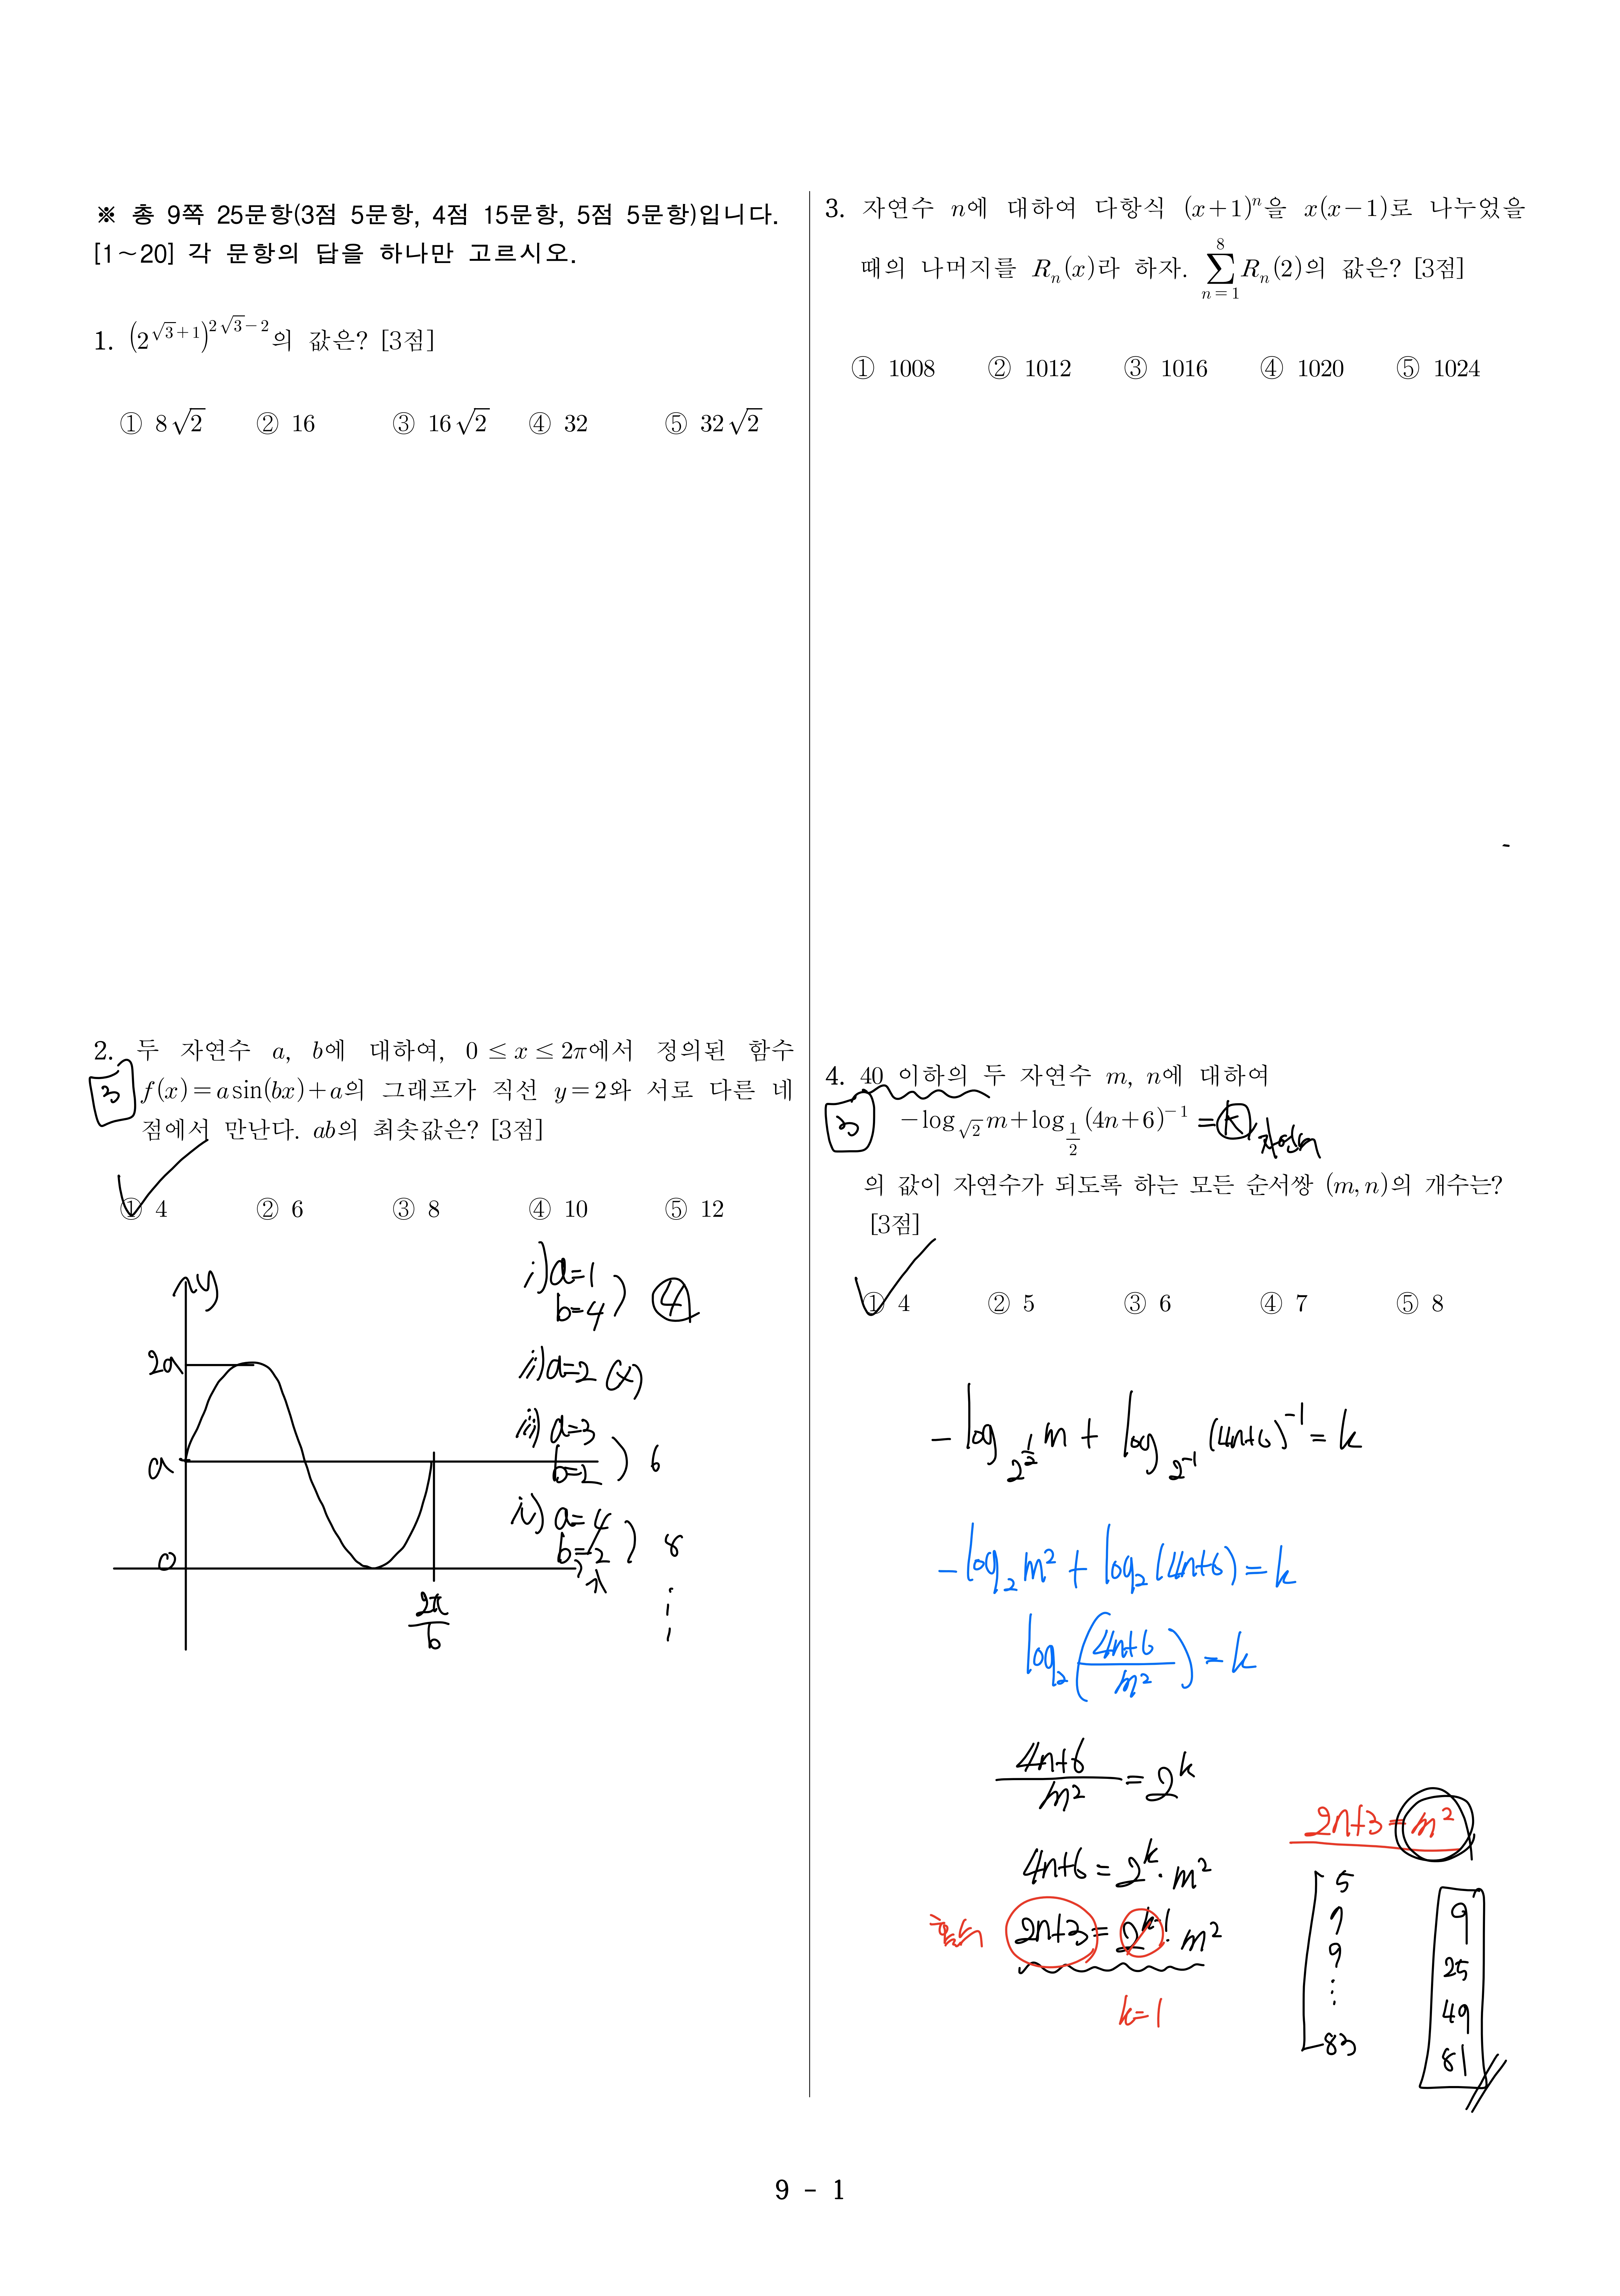 ※ 총 9쪽 25문항(3점 5문항, 4점 15문항, 5점 5문항)입니다.
[1~20] 각 문항의 답을 하나만 고르시오.
1. (2^{√3+1})^{2√3-2}의 값은? [3점]
① 8√2 ② 16 ③ 16√2 ④ 32 ⑤ 32√2
2. 두 자연수 a, b에 대하여, 0 ≤ x ≤ 2π에서 정의된 함수
3
f(x)=a sin(bx)+a의 그래프가 직선 y=2와 서로 다른 네
점에서 만난다. ab의 최솟값은? [3점]
① 4 ② 6 ③ 8 ④ 10 ⑤ 12
i) a=1
b=4 ) ④
ii) a=2 (×)
iii) a=3
b=2 ) 6
iv) a=4
b=2 ) 8
y
2a
a
0
2π/b
3. 자연수 n에 대하여 다항식 (x+1)^n을 x(x-1)로 나누었을
때의 나머지를 R_n(x)라 하자. ∑_{n=1}^{8} R_n(2)의 값은? [3점]
① 1008 ② 1012 ③ 1016 ④ 1020 ⑤ 1024
4. 40 이하의 두 자연수 m, n에 대하여
3
-log_{√2} m + log_{1/2} (4n+6)^{-1} = k, 자연수
의 값이 자연수가 되도록 하는 모든 순서쌍 (m, n)의 개수는?
[3점]
① 4 ② 5 ③ 6 ④ 7 ⑤ 8
-log_{2^{1/2}} m + log_{2^{-1}} (4n+6)^{-1} = k
-log_2 m² + log_2 (4n+6) = k
log_2 ((4n+6)/m²) = k
(4n+6)/m² = 2^k
4n+6 = 2^k · m²
홀수 2n+3 = 2^{k-1} · m²
k=1
2n+3 = m²
5
7
9
⋮
83
9
25
49
81
9 - 1